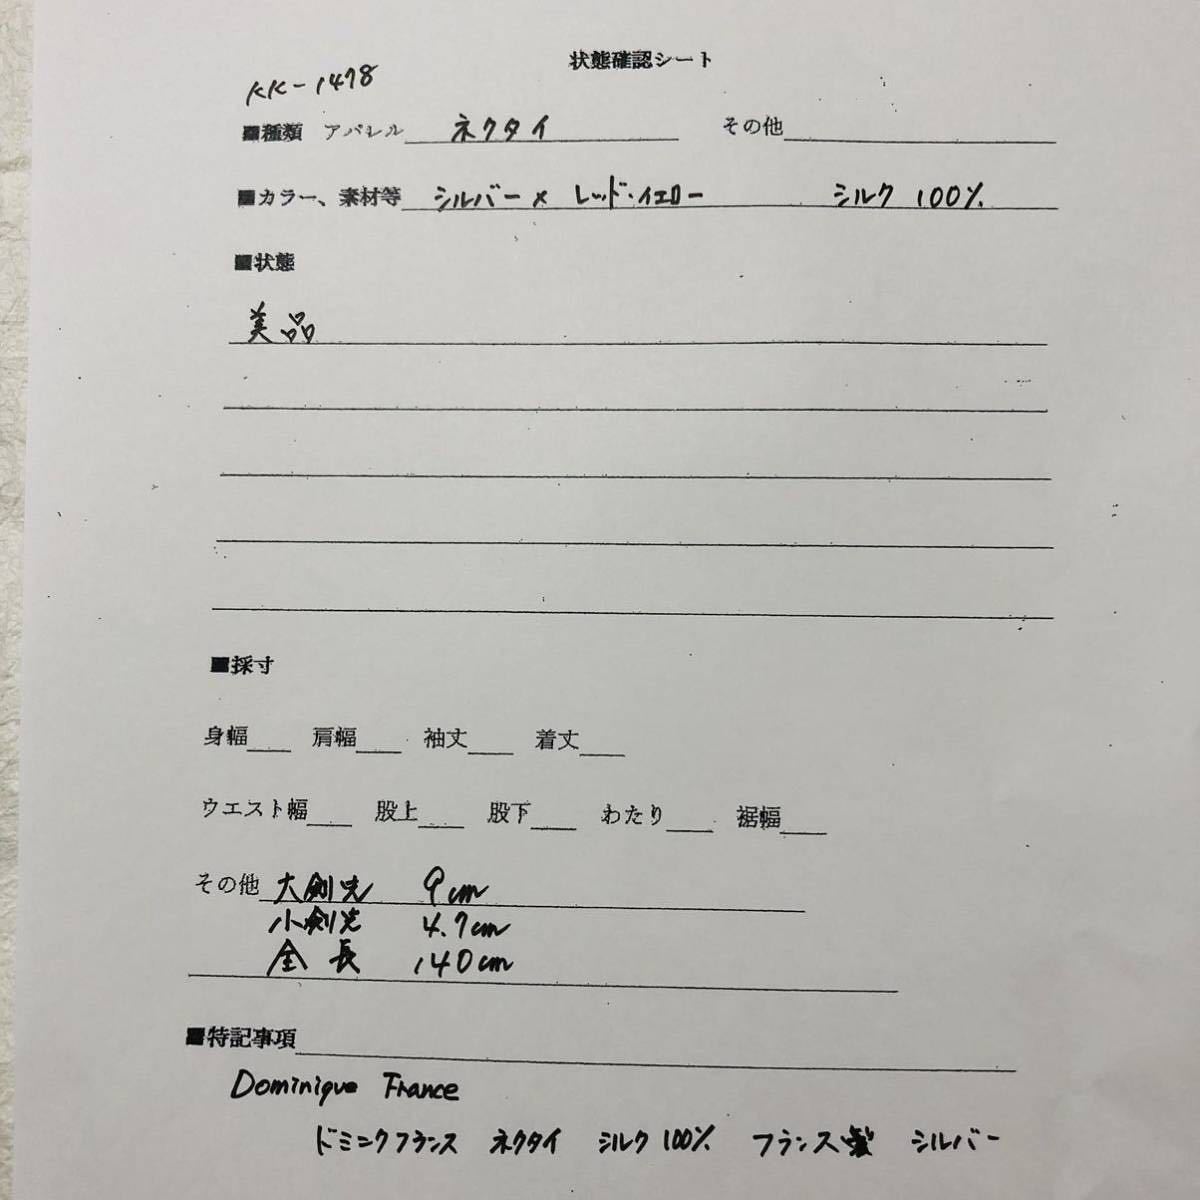 状態確認シート
KK-1478
■種類 アパレル ネクタイ その他
■カラー、素材等 シルバー× レッド・イエロー シルク 100%
■状態
美品
■採寸
身幅 肩幅 袖丈 着丈
ウエスト幅 股上 股下 わたり 裾幅
その他 大剣先 9cm
小剣先 4.7cm
全長 140cm
■特記事項
Dominique France
ドミニクフランス ネクタイ シルク100% フランス製 シルバー